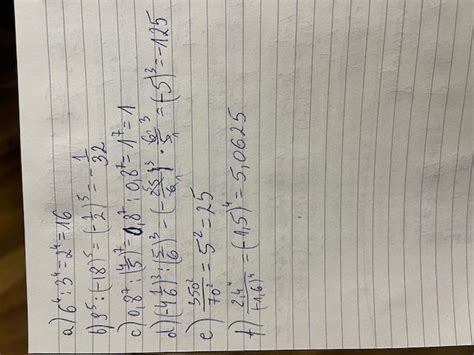 a) 6⁴ : 3⁴ = 2⁴ = 16
b) 9⁵ : (-18)⁵ = (-1/2)⁵ = -1/32
c) 0,8⁷ : (4/5)⁷ = 0,8⁷ : 0,8⁷ = 1⁷ = 1
d) (-4 1/6)³ : (5/6)³ = (-25/6)³ · (6/5)³ = (-5)³ = -125
e) 350²/70² = 5² = 25
f) 2,4⁴/(-1,6)⁴ = (-1,5)⁴ = 5,0625